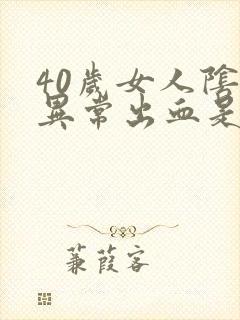 40歲女人陰
異常出血是
蒹葭客